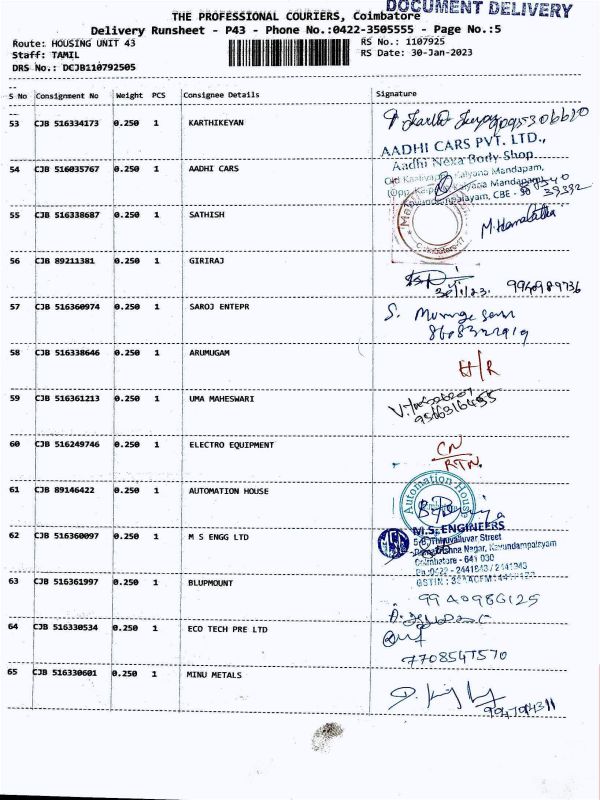 DOCUMENT DELIVERY
THE PROFESSIONAL COURIERS, Coimbatore
Delivery Runsheet - P43 - Phone No.:0422-3505555 - Page No.:5
Route: HOUSING UNIT 43 RS No.: 1107925
Staff: TAMIL RS Date: 30-Jan-2023
DRS No.: DCJB110792505
S No Consignment No Weight PCS Consignee Details Signature
53 CJB 516334173 0.250 1 KARTHIKEYAN
AADHI CARS PVT. LTD.,
Aadhi Nexa Body Shop
54 CJB 516035767 0.250 1 AADHI CARS
Kalyana Mandapam,
55 CJB 516338687 0.250 1 SATHISH
56 CJB 89211381 0.250 1 GIRIRAJ
30/1/23. 9940989736
57 CJB 516360974 0.250 1 SAROJ ENTEPR S.
58 CJB 516338646 0.250 1 ARUMUGAM H/R
59 CJB 516361213 0.250 1 UMA MAHESWARI
60 CJB 516249746 0.250 1 ELECTRO EQUIPMENT CN
RTN.
61 CJB 89146422 0.250 1 AUTOMATION HOUSE Automation House
62 CJB 516360097 0.250 1 M S ENGG LTD M.S. ENGINEERS
Thiruvalluvar Street
Nagar, Kavundampalayam
Coimbatore - 641 030
63 CJB 516361997 0.250 1 BLUPMOUNT
9940986125
64 CJB 516330534 0.250 1 ECO TECH PRE LTD
7708547570
65 CJB 516330601 0.250 1 MINU METALS